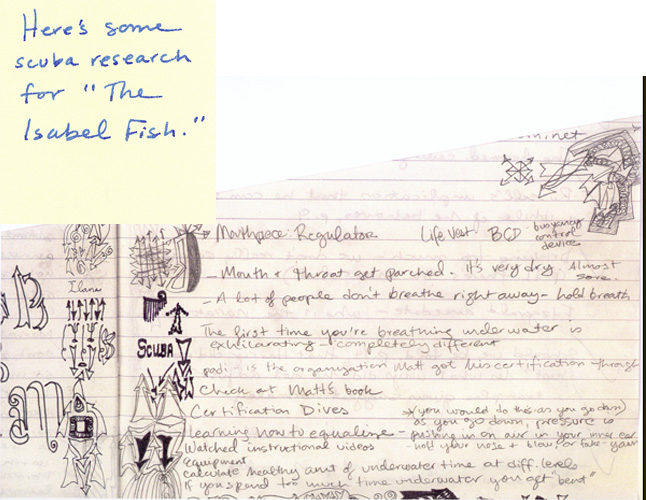 Here's some
scuba research
for "The
Isabel Fish."
Mouthpiece Regulator Life Vest BCD - buoyancy
control
device
Ilana
- Mouth & throat get parched. It's very dry. Almost
sore.
- A lot of people don't breathe right away - hold breath
The first time you're breathing underwater is
exhilarating - completely different
SCUBA
padi - is the organization Matt got his certification through
Check at Matt's book
Certification Dives
* (you would do this as you go down)
as you go down, pressure is
Learning how to equalize - pushing in on air in your inner ear
- hold your nose + blow, or fake-yawn
Watched instructional videos
equipment
calculate healthy amt of underwater time at diff. levels
If you spend too much time underwater you get "bent"